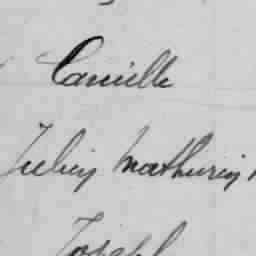 Camille
Julien Mathurin
Joseph